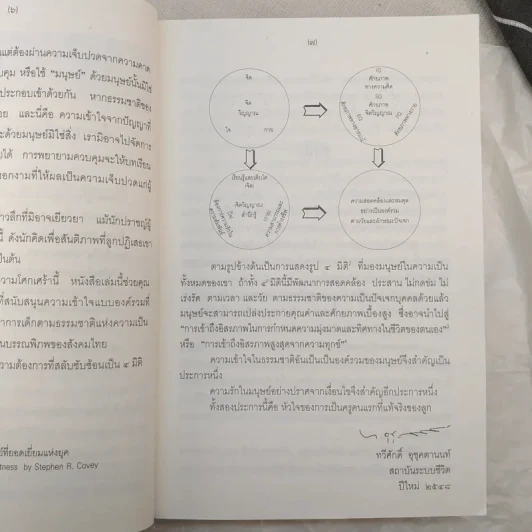 (๖)
แต่ต้องผ่านความเจ็บปวดจากความคาด
คุม หรือใช้ "มนุษย์" ด้วยมนุษย์นั้นมิใช่
ประกอบเข้าด้วยกัน หากธรรมชาติของ
อย และนี่คือ ความเข้าใจจากปัญญาที่
ะด้วยมนุษย์มิใช่สิ่ง เรามิอาจไปจัดการ
ได้ การพยายามควบคุมจะให้บทเรียน
อกงามที่ให้ผลเป็นความเจ็บปวดแก่ผู้
าวลึกที่มิอาจเยียวยา แม้นักปราชญ์ผู้
นี้ ดังนักคิดเพื่อสันติภาพที่ลูกปฏิเสธเขา
ป็นต้น
ความโศกเศร้านี้ หนังสือเล่มนี้ช่วยคุณ
ที่สนับสนุนความเข้าใจแบบองค์รวมที่
าการเด็กตามธรรมชาติแห่งความเป็น
นบรรณพิภพของสังคมไทย
ความต้องการที่สลับซับซ้อนเป็น ๔ มิติ
ย์ที่ยอดเยี่ยมแห่งยุค
tness by Stephen R. Covey
(๗)
จิต
จิต
วิญญาณ
ใจ กาย
IQ
ศักยภาพ
ทางความคิด
SQ
ศักยภาพ
จิตวิญญาณ
EQ
PQ
เรียนรู้และเติบโต
(จิต)
จิตวิญญาณ
สำนึกรู้
ความสอดคล้องและสมดุล
อย่างเป็นองค์รวม
ตามวัยและลักษณะปัจเจก
ตามรูปข้างต้นเป็นการแสดงรูป ๔ มิติ ที่มองมนุษย์ในความเป็น
ทั้งหมดของเขา ถ้าทั้ง ๔ มิตินี้มีพัฒนาการสอดคล้อง ประสาน ไม่กดข่ม ไม่
เร่งรัด ตามเวลา และวัย ตามธรรมชาติของความเป็นปัจเจกบุคคลด้วยแล้ว
มนุษย์จะสามารถแปล่งประกายคุณค่าและศักยภาพเบื้องสูง ซึ่งอาจนำไปสู่
"การเข้าถึงอิสรภาพในการกำหนดความมุ่งมาดและทิศทางในชีวิตของตนเอง"
หรือ "การเข้าถึงอิสรภาพสูงสุดจากความทุกข์"
ความเข้าใจในธรรมชาติอันเป็นเป็นองค์รวมของมนุษย์จึงสำคัญเป็น
ประการหนึ่ง
ความรักในมนุษย์อย่างปราศจากเงื่อนไขจึงสำคัญอีกประการหนึ่ง
ทั้งสองประการนี้คือ หัวใจของการเป็นครูคนแรกที่แท้จริงของลูก
ทวีศักดิ์ อุชุคตานนท์
สถาบันระบบชีวิต
ปีใหม่ ๒๕๔๘